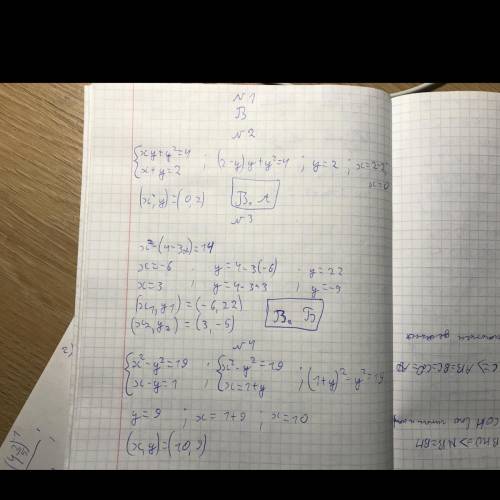 N 1
В
N 2
{xy+y²=4
x+y=2 ; (2-y)y+y²=4 ; y=2 ; x=2-2
x=0
(x, y)=(0,2) В. А
N 3
x²-(4-3x)=14
x=-6 ; y=4-3(-6) ; y=22
x=3 ; y=4-3·3 ; y=-5
(x₁, y₁)=(-6,22)
(x₂, y₂)=(3,-5) В. Б
N 4
{x²-y²=19
x-y=1 ; {x²-y²=19
x=1+y ; (1+y)²-y²=19
y=9 ; x=1+9 ; x=10
(x, y)=(10,9)